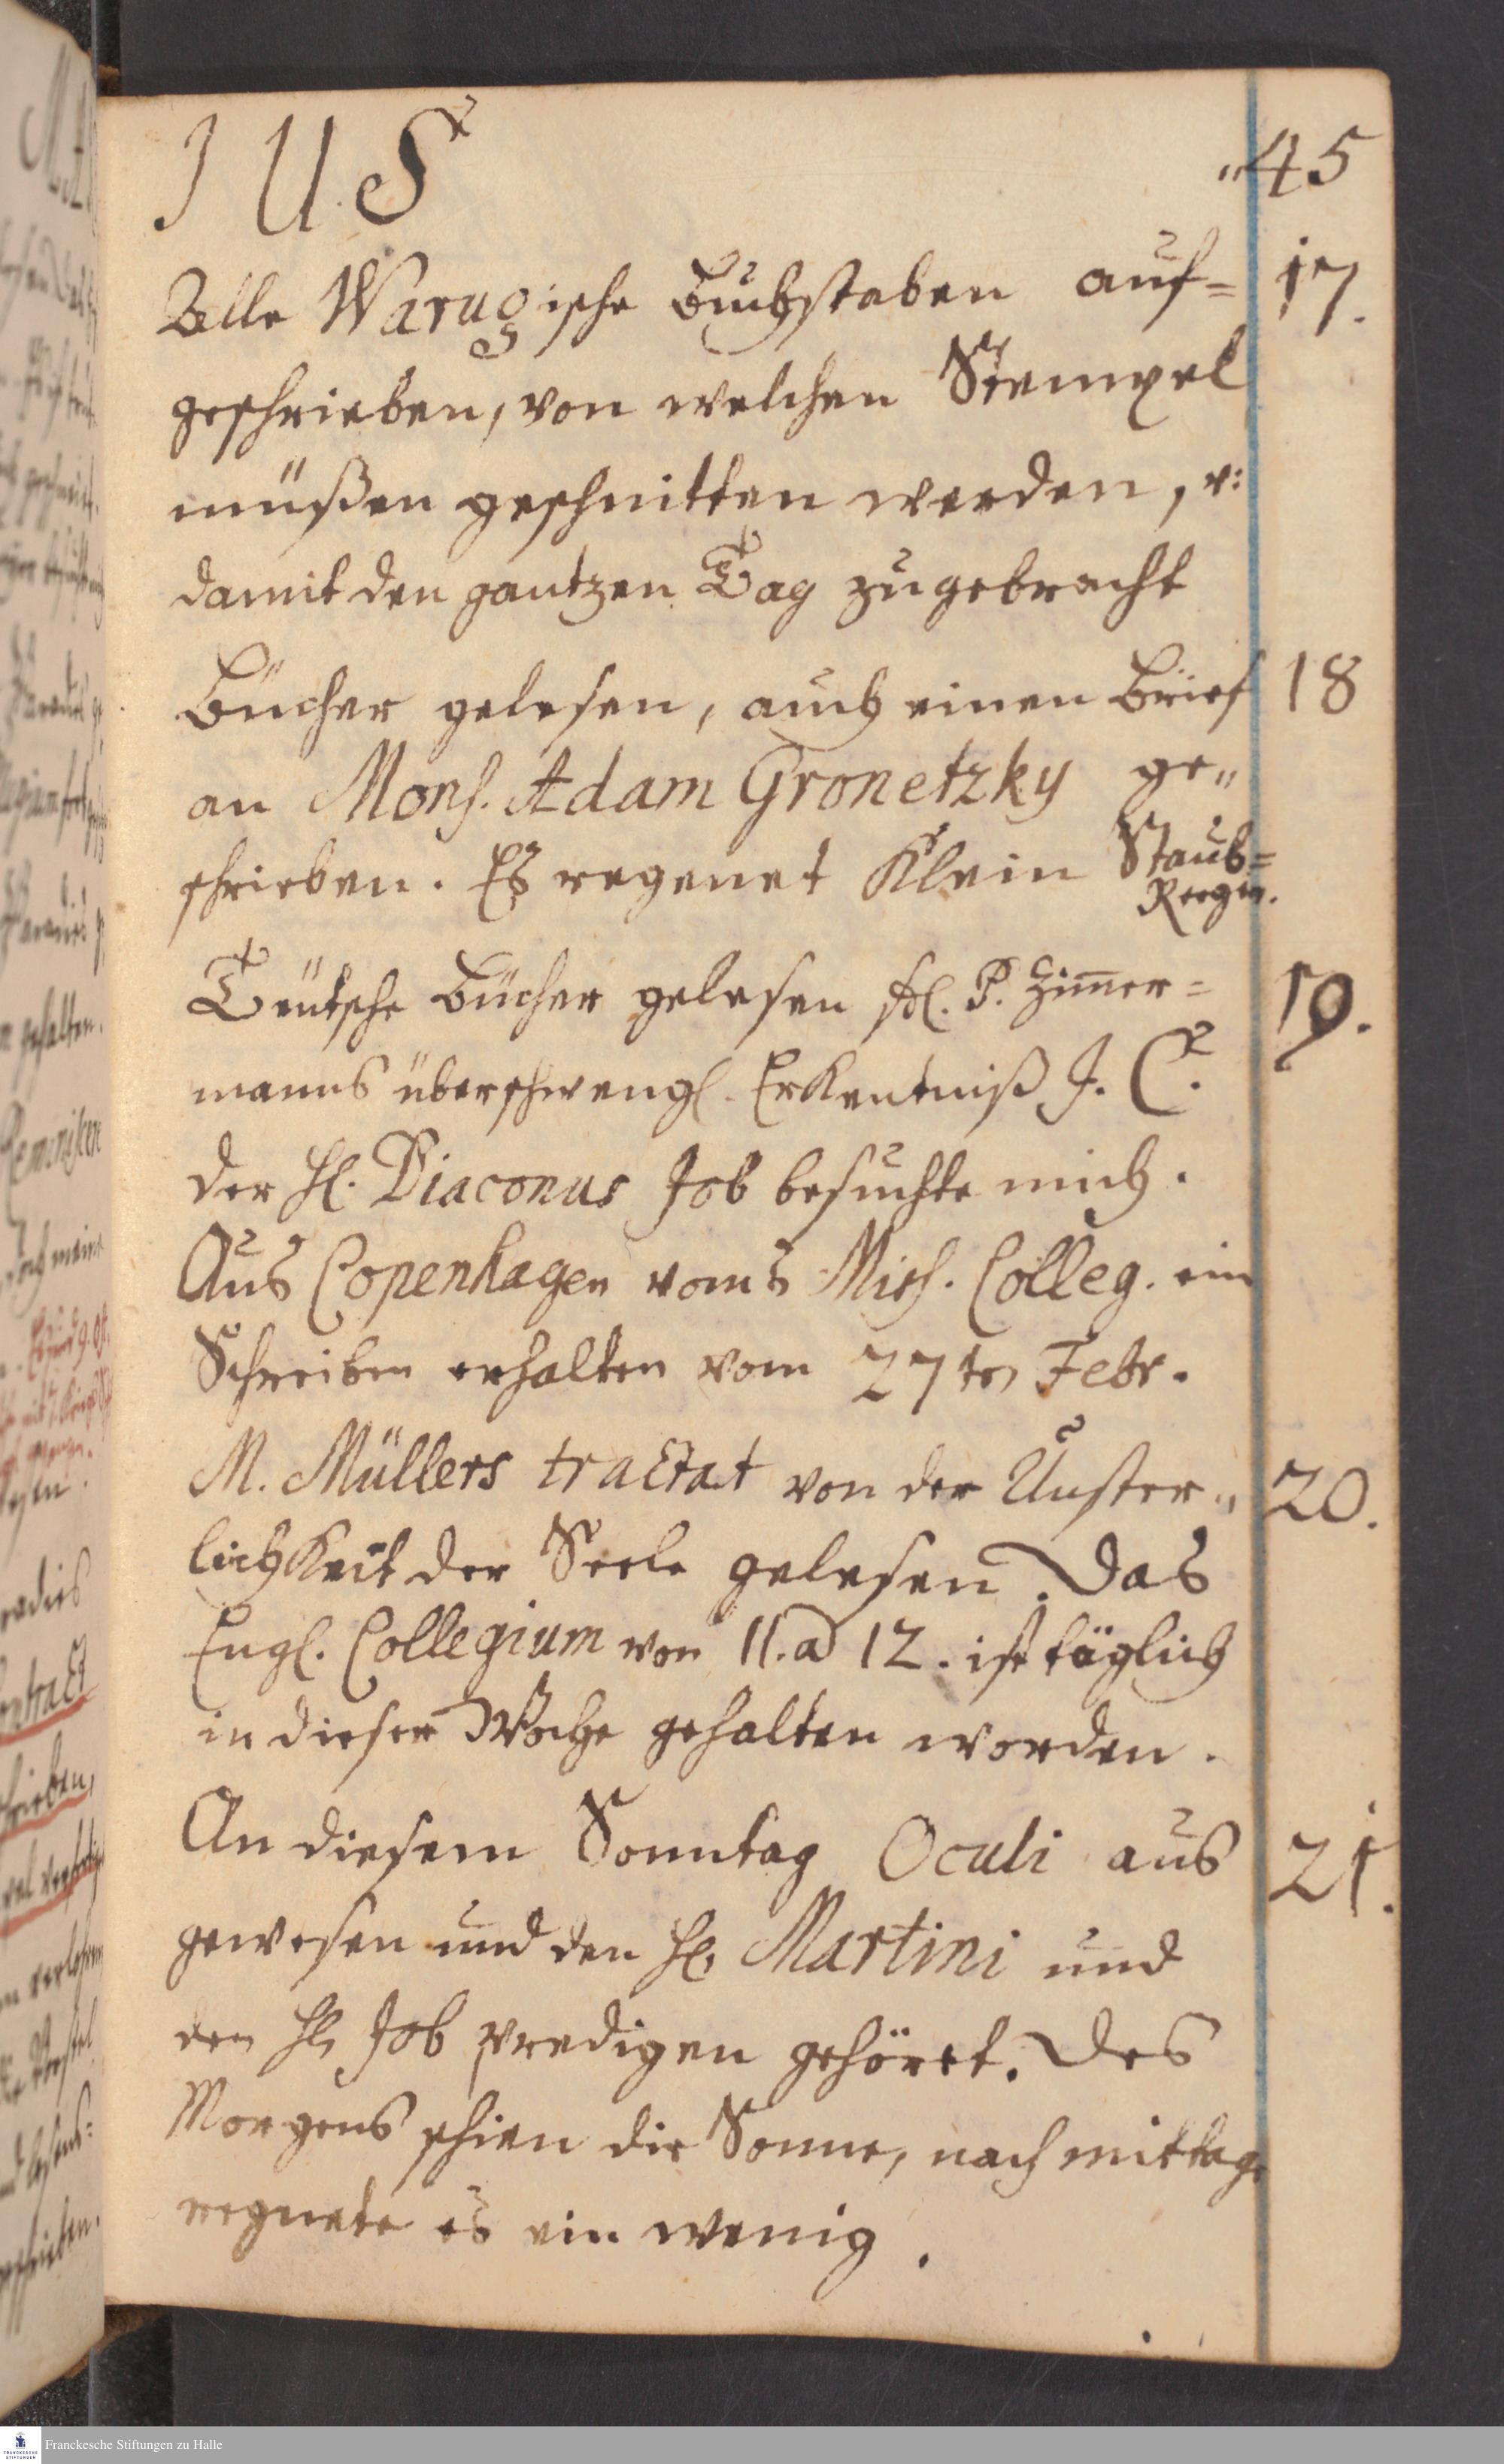 J U S
"45
Alle Warugische Buchstaben auf=
17.
geschrieben, von welchen Stempel
müßen geschnitten werden, v:
damit den gantzen Tag zugebracht
Bücher gelesen, auch einen Brief
18
an Mons. Adam Gronetzky ge"
schrieben. Es regenet Klein Staub=
Regen.
Teutsche Bücher gelesen H. P. Zimmer=
19.
manns überschwengl. Erkentniß J. C.
der H. Diaconus Job besuchte mich.
Aus Copenhagen vom Miss. Colleg. ein
Schreiben erhalten vom 27ten Febr.
M. Müllers tractat von der Unster"
20.
lichkeit der Seele gelesen. Das
Engl. Collegium von 11. a 12. ist täglich
in dieser Woche gehalten worden.
An diesem Sonntag Oculi aus
21.
gewesen und den H. Martini und
den H. Job predigen gehöret. Des
Morgens schien die Sonne, nach mittags
regnete es ein wenig.
Franckesche Stiftungen zu Halle